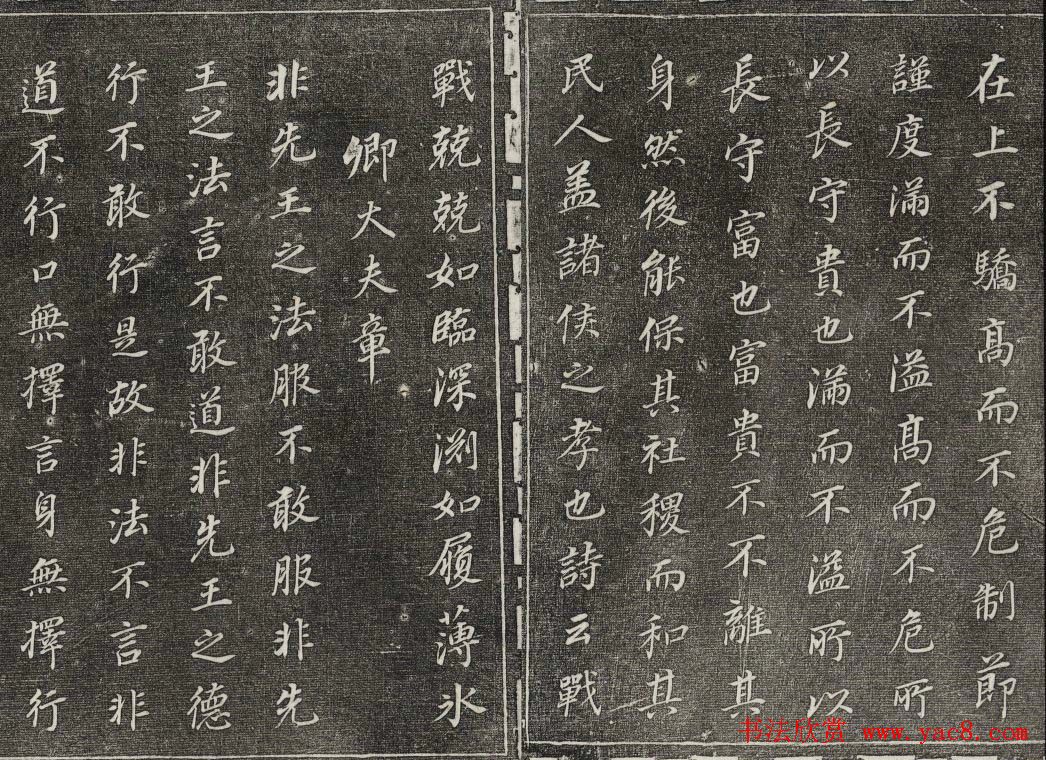 在上不驕髙而不危制節
謹度滿而不溢髙而不危所
以長守貴也滿而不溢所以
長守富也富貴不不離其
身然後能保其社稷而和其
民人盖諸侯之孝也詩云戰
戰兢兢如臨深渊如履薄氷
卿大夫章
非先王之法服不敢服非先
王之法言不敢道非先王之德
行不敢行是故非法不言非
道不行口無擇言身無擇行
书法欣赏 www.yac8.com